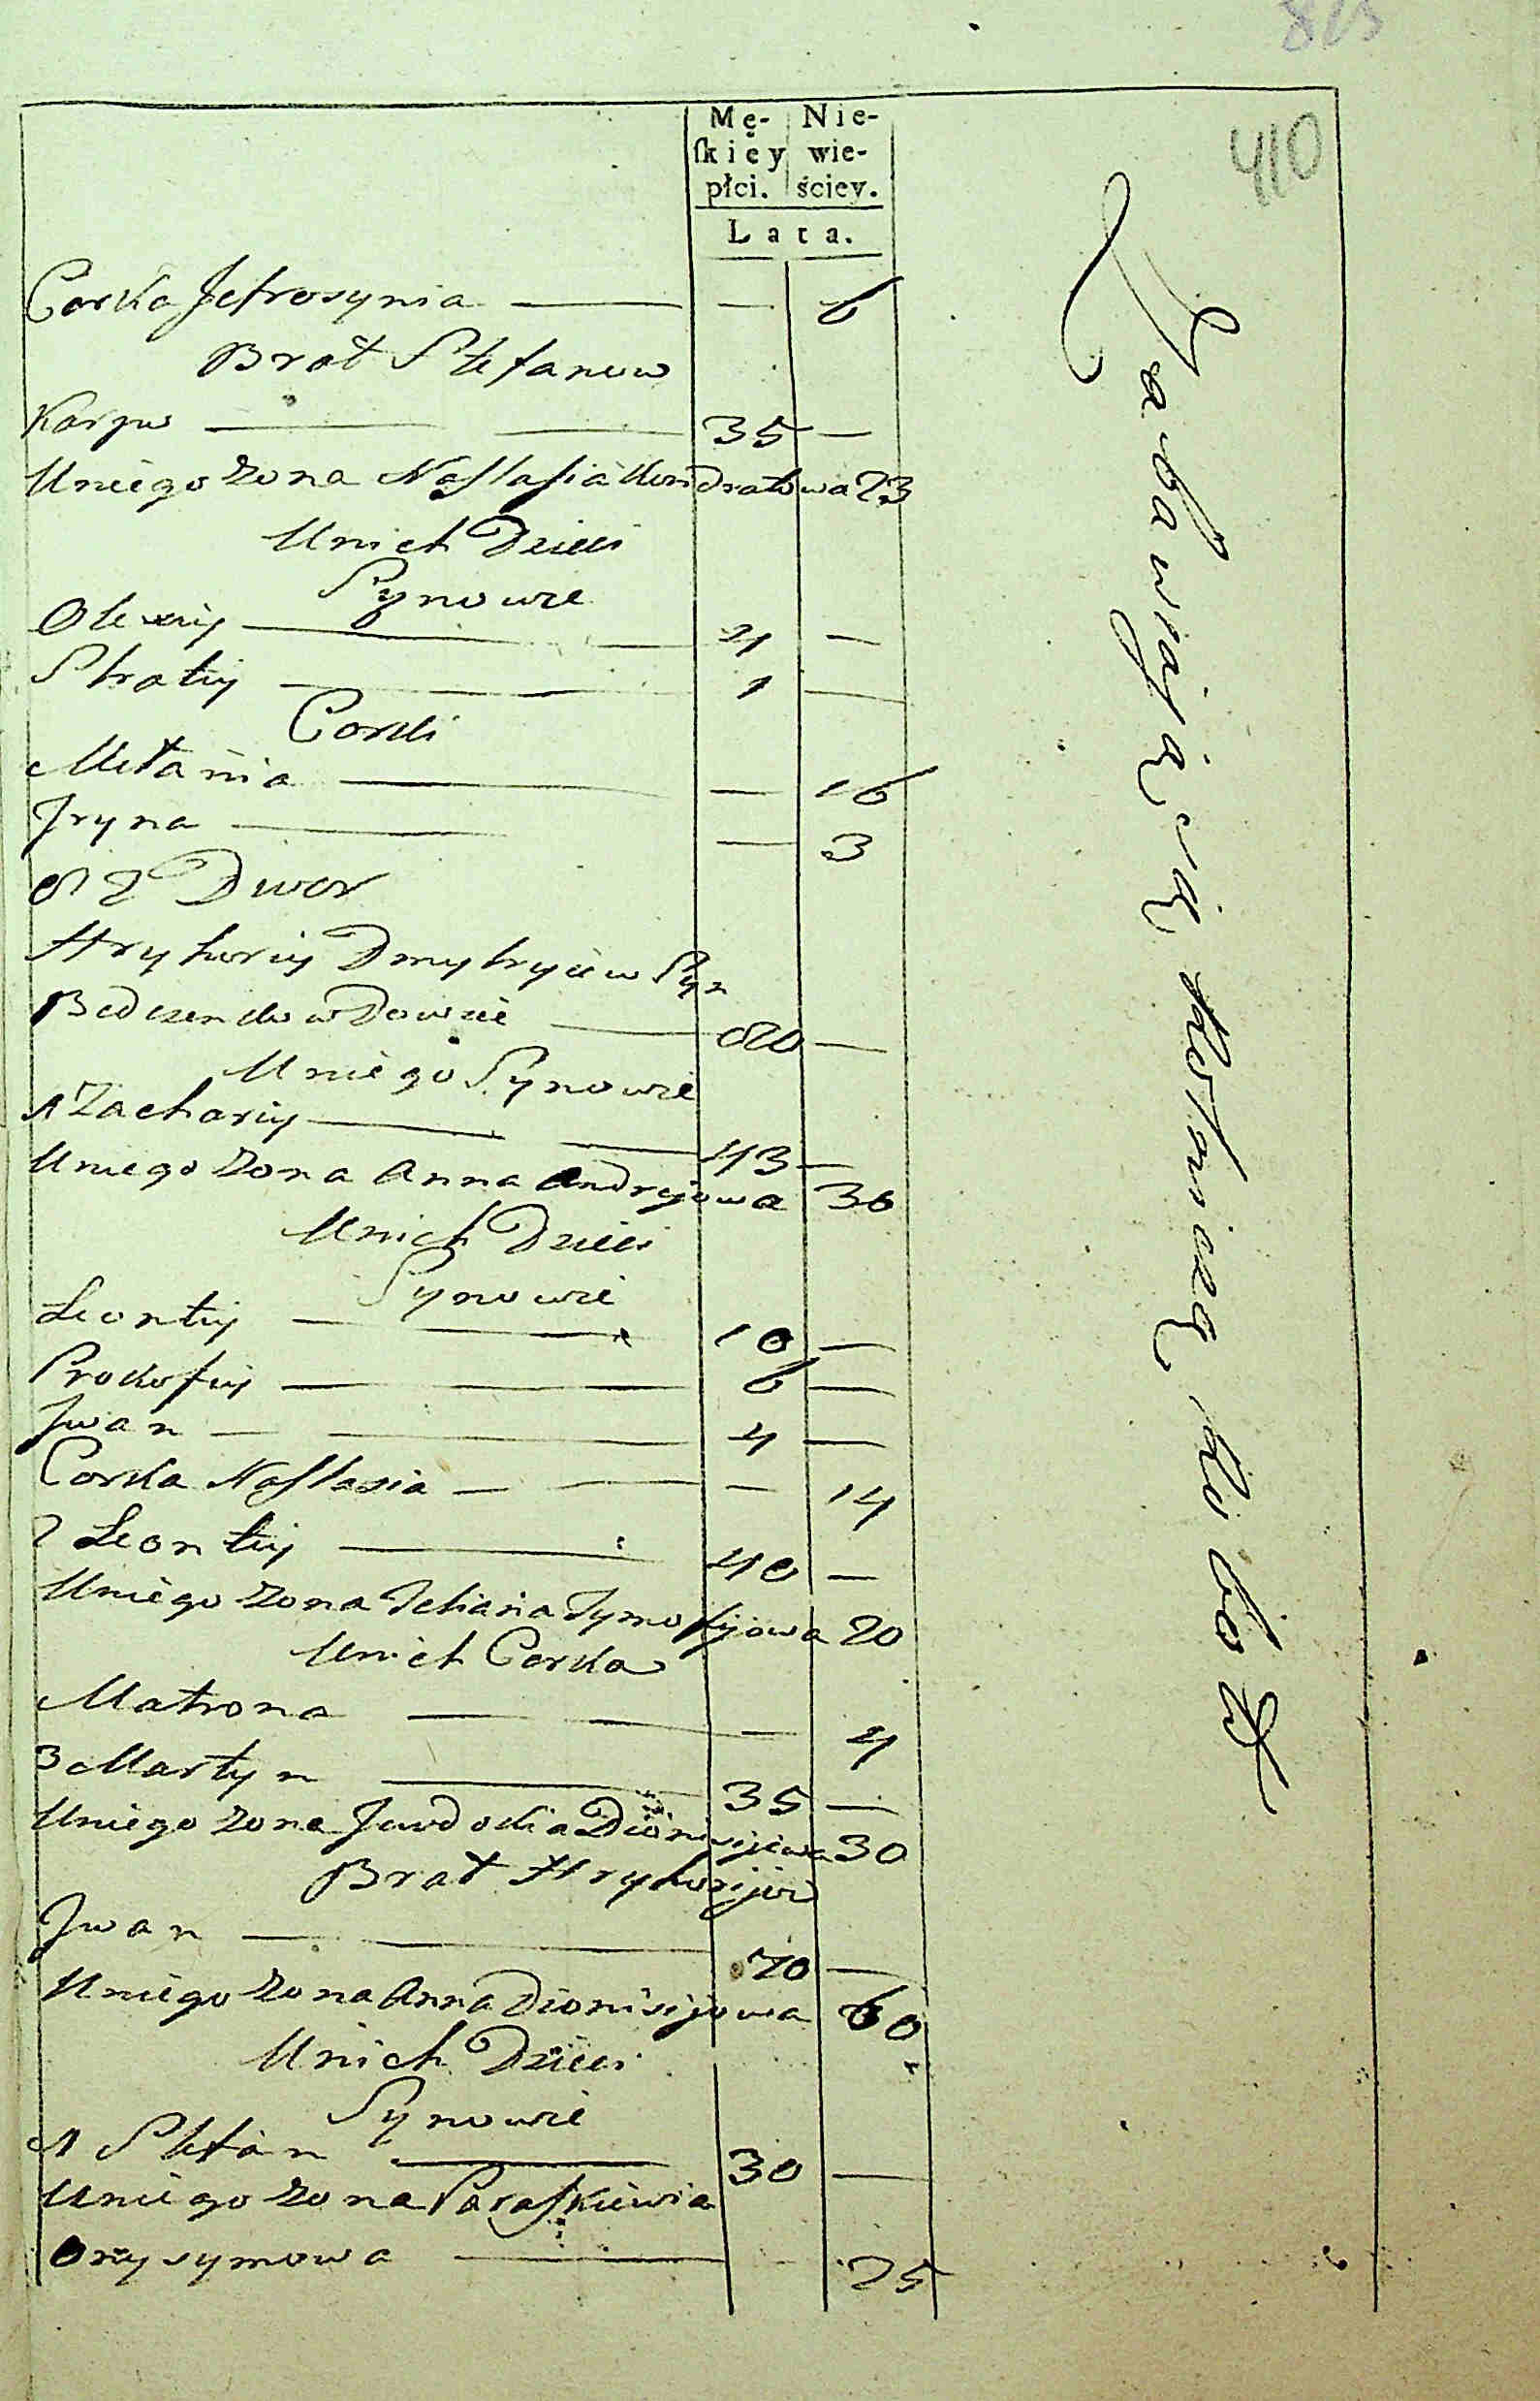 813
410
Mę- Nie-
ſkiey wie-
płci. ściey.
Lata.
Corka Jefrosynia — — 6
Brat Stefanow
Karpo — 35 —
Uniego zona Nastasia Kondratowa 23
Unich Dzieci
Synowie
Olexiy — 4 —
Stratiy — 1 —
Corki
Mełania — — 16
Jryna — — 3
2 Dwor
Hryhoriy Dmytryiew Syn
Bedzenko wDowie — 80 —
Uniego Synowie
1 Zachariy — 43 —
Uniego zona Anna Andrejowa 36
Unich Dzieci
Synowie
Leontiy — 10 —
Prokofiy — 6 —
Jwan — 4 —
Corka Nastasia — — 14
2 Leontiy — 40 —
Uniego zona Tymofijowa 20
Unich Corka
Matrona — — 4
3 Martyn — 35 —
Uniego zona Jewdokia Dionisijowa 30
Brat Hryhorijow
Jwan — 70 —
Uniego zona Anna Dionisijowa 60
Unich Dzieci
Synowie
1 Stefan — 30 —
Uniego zona Paraskiewia
Onysymowa — 25
Zabawiaią się Rolniczą Robotą